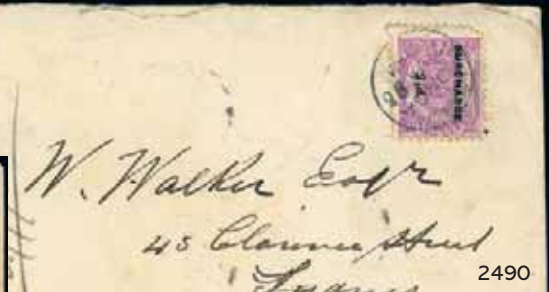 SURCHARGE
W. Walker Esqr
45 Clarence Street
Sydney
2490